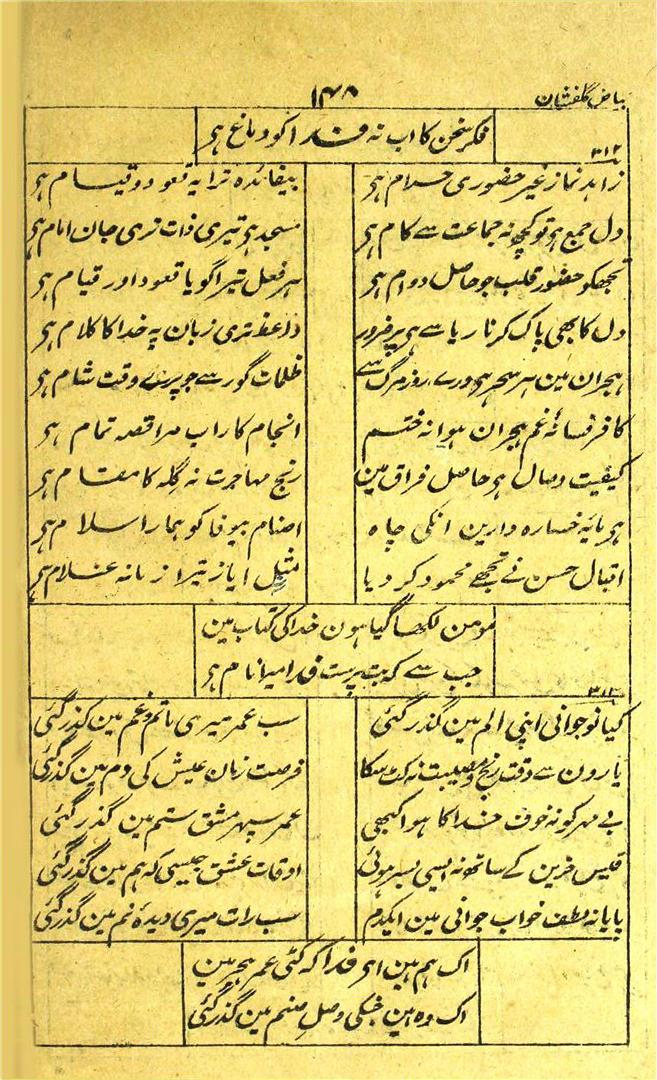 بیاض گلفشان
۱۴۸
فکر سخن کا اب نہ فدا کو دماغ ہی
۳۱۲
زاہد نماز غیر حضوری حرام ہی
بیفائدہ ترا یہ قعود و قیام ہی
دل جمع ہو تو کچھ نہ جماعت سے کام ہی
مسجد ہی تیری ذات تری جان امام ہی
تجھکو حضور قلب جو حاصل دوام ہی
ہر فعل تیرا گویا قعود اور قیام ہی
دل کا بھی پاک کرنا ریا سے ہی پر ضرور
واعظ تری زبان پہ خدا کا کلام ہی
ہجران مین ہر سحر ہی ورے روز مرگ سے
ظلمات گور سے جو پرے وقت شام ہی
کافر فسانۂ غم ہجران ہوا نہ ختم
انجام کار اب مرا قصہ تمام ہی
کیفیت وصال ہی حاصل فراق مین
رنج مہاجرت نہ گلہ کا مقام ہی
ہی مایۂ خسارہ دارین انکی چاہ
اصنام بیوفا کو ہمارا سلام ہی
اقبال حسن نے تجھے محمود کر دیا
مثل ایاز تیرا زمانہ غلام ہی
مومن لکھا گیا ہون خدا کی کتاب مین
جب سے کہ بت پرست فدا میرا نام ہی
۳۱۳
کیا نوجوانی اپنی الم مین گذر گئی
سب عمر میری ماتم و غم مین گذر گئی
یارون سے وقت رنج و مصیبت نہ کٹ سکا
فرصت زمان عیش کی دم مین گذر گئی
بے مہر کو نہ خوف خدا کا ہوا کبھی
عمر سپہر مشق ستم مین گذر گئی
قیس حزین کے ساتھ نہ ایسی بسر ہوئی
اوقات عشق جیسی کہ ہم مین گذر گئی
پایا نہ لطف خواب جوانی مین ایکدم
سب رات میری دیدۂ نم مین گذر گئی
اک ہم ہین اے فدا کہ کٹی عمر ہجر مین
اک وہ ہین جنکی وصل صنم مین گذر گئی